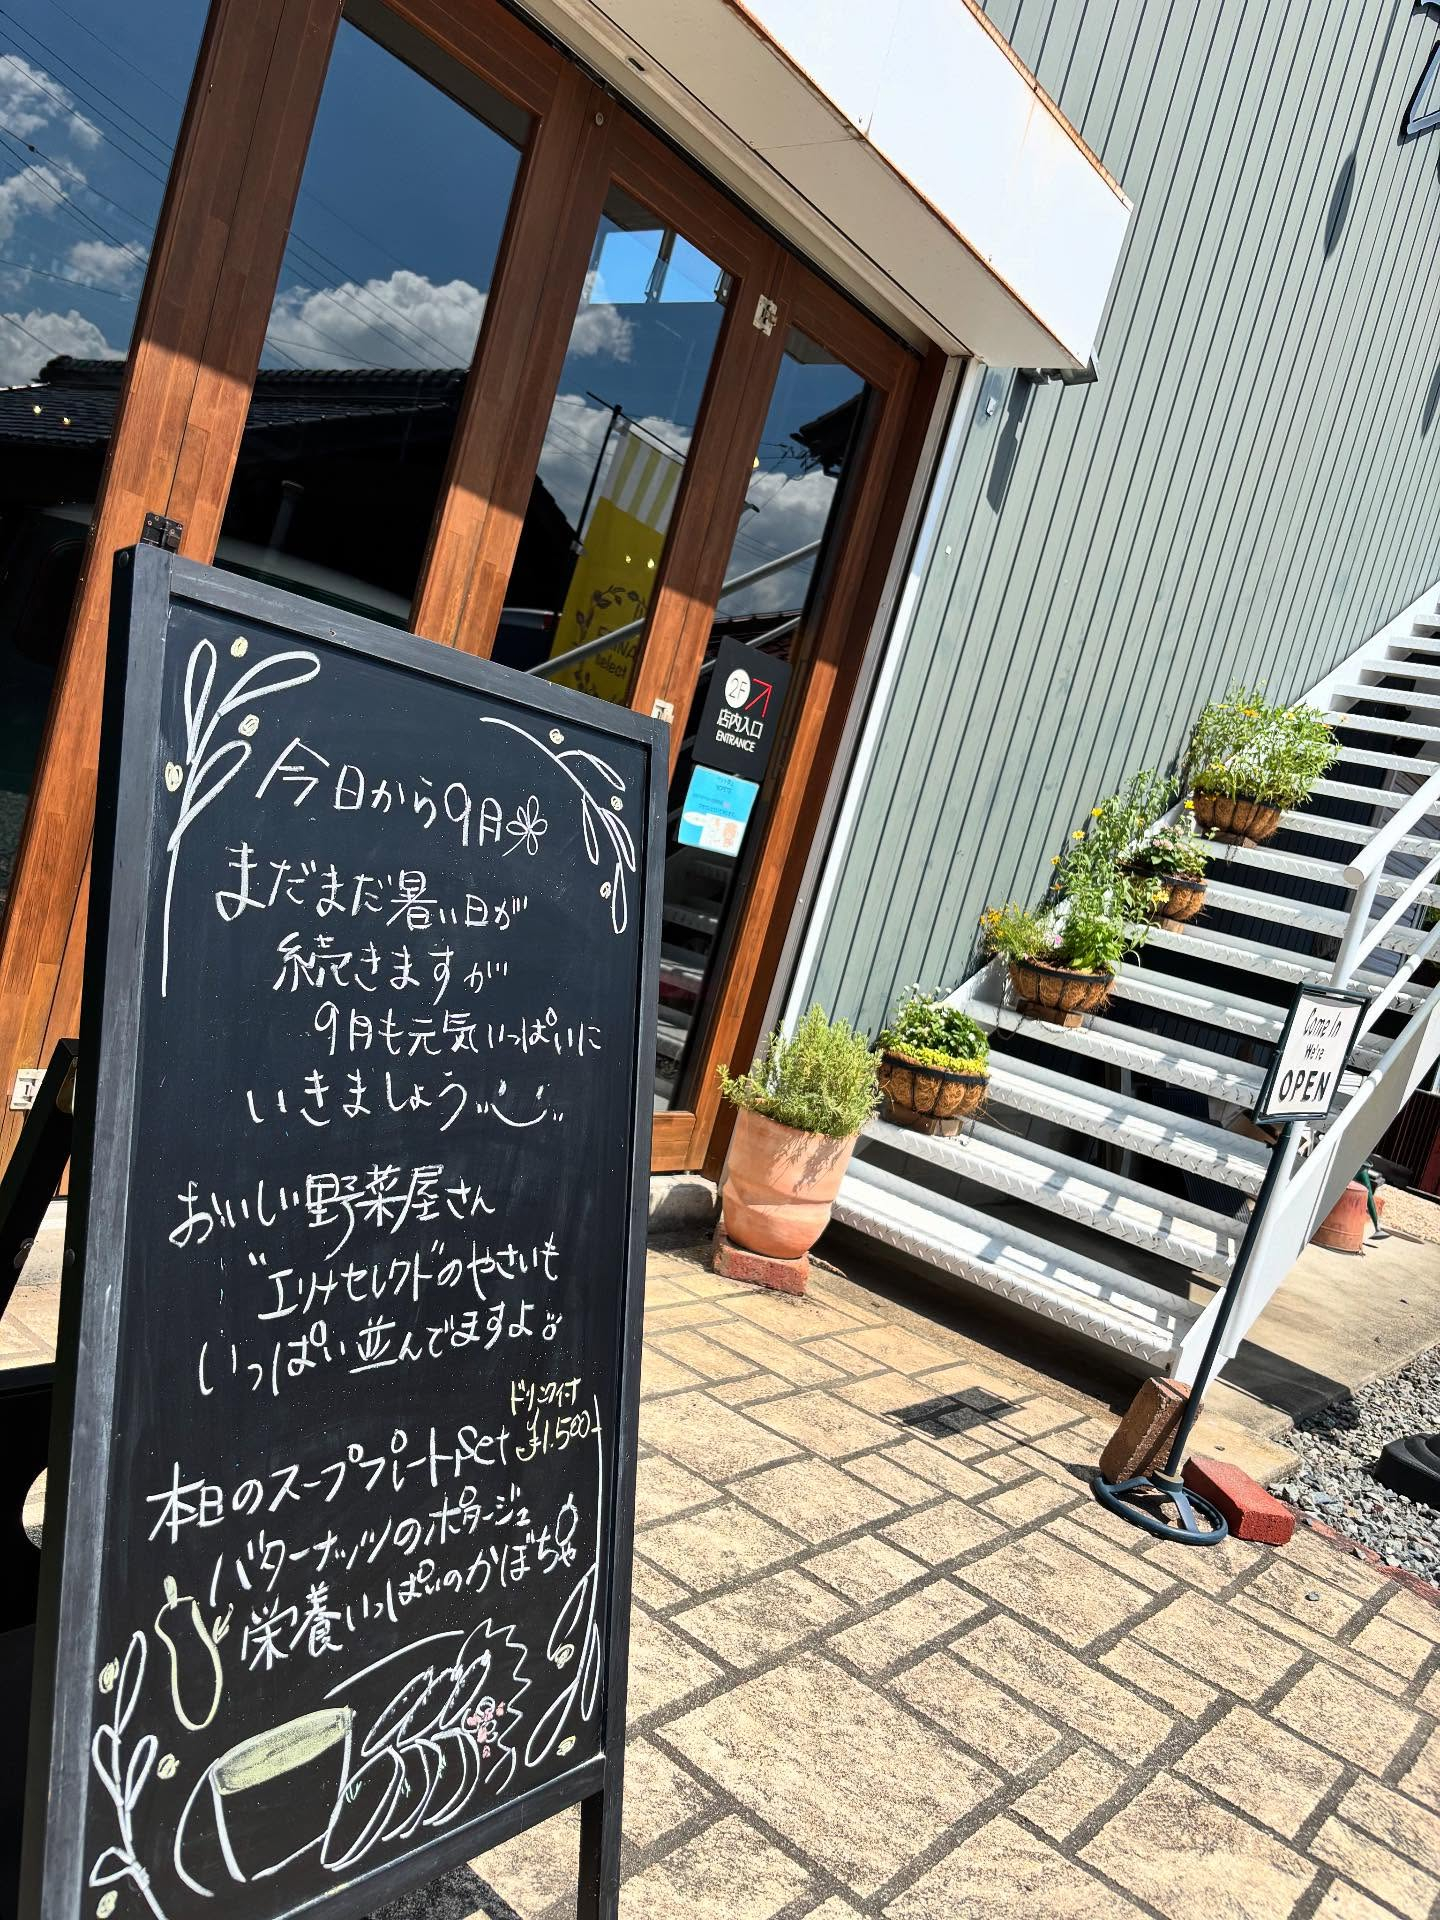 今日から9月
まだまだ暑い日が
続きますが
9月も元気いっぱいに
いきましょう
おいしい野菜屋さん
"エリナセレクトのやさいも
いっぱい並んでますよ
ドリンクイーナ
¥1,500-
本日のスーププレートset
バターナッツのポタージュ
栄養いっぱいのかぼちゃ
2F
店内入口
ENTRANCE
select
Come In
We're
OPEN